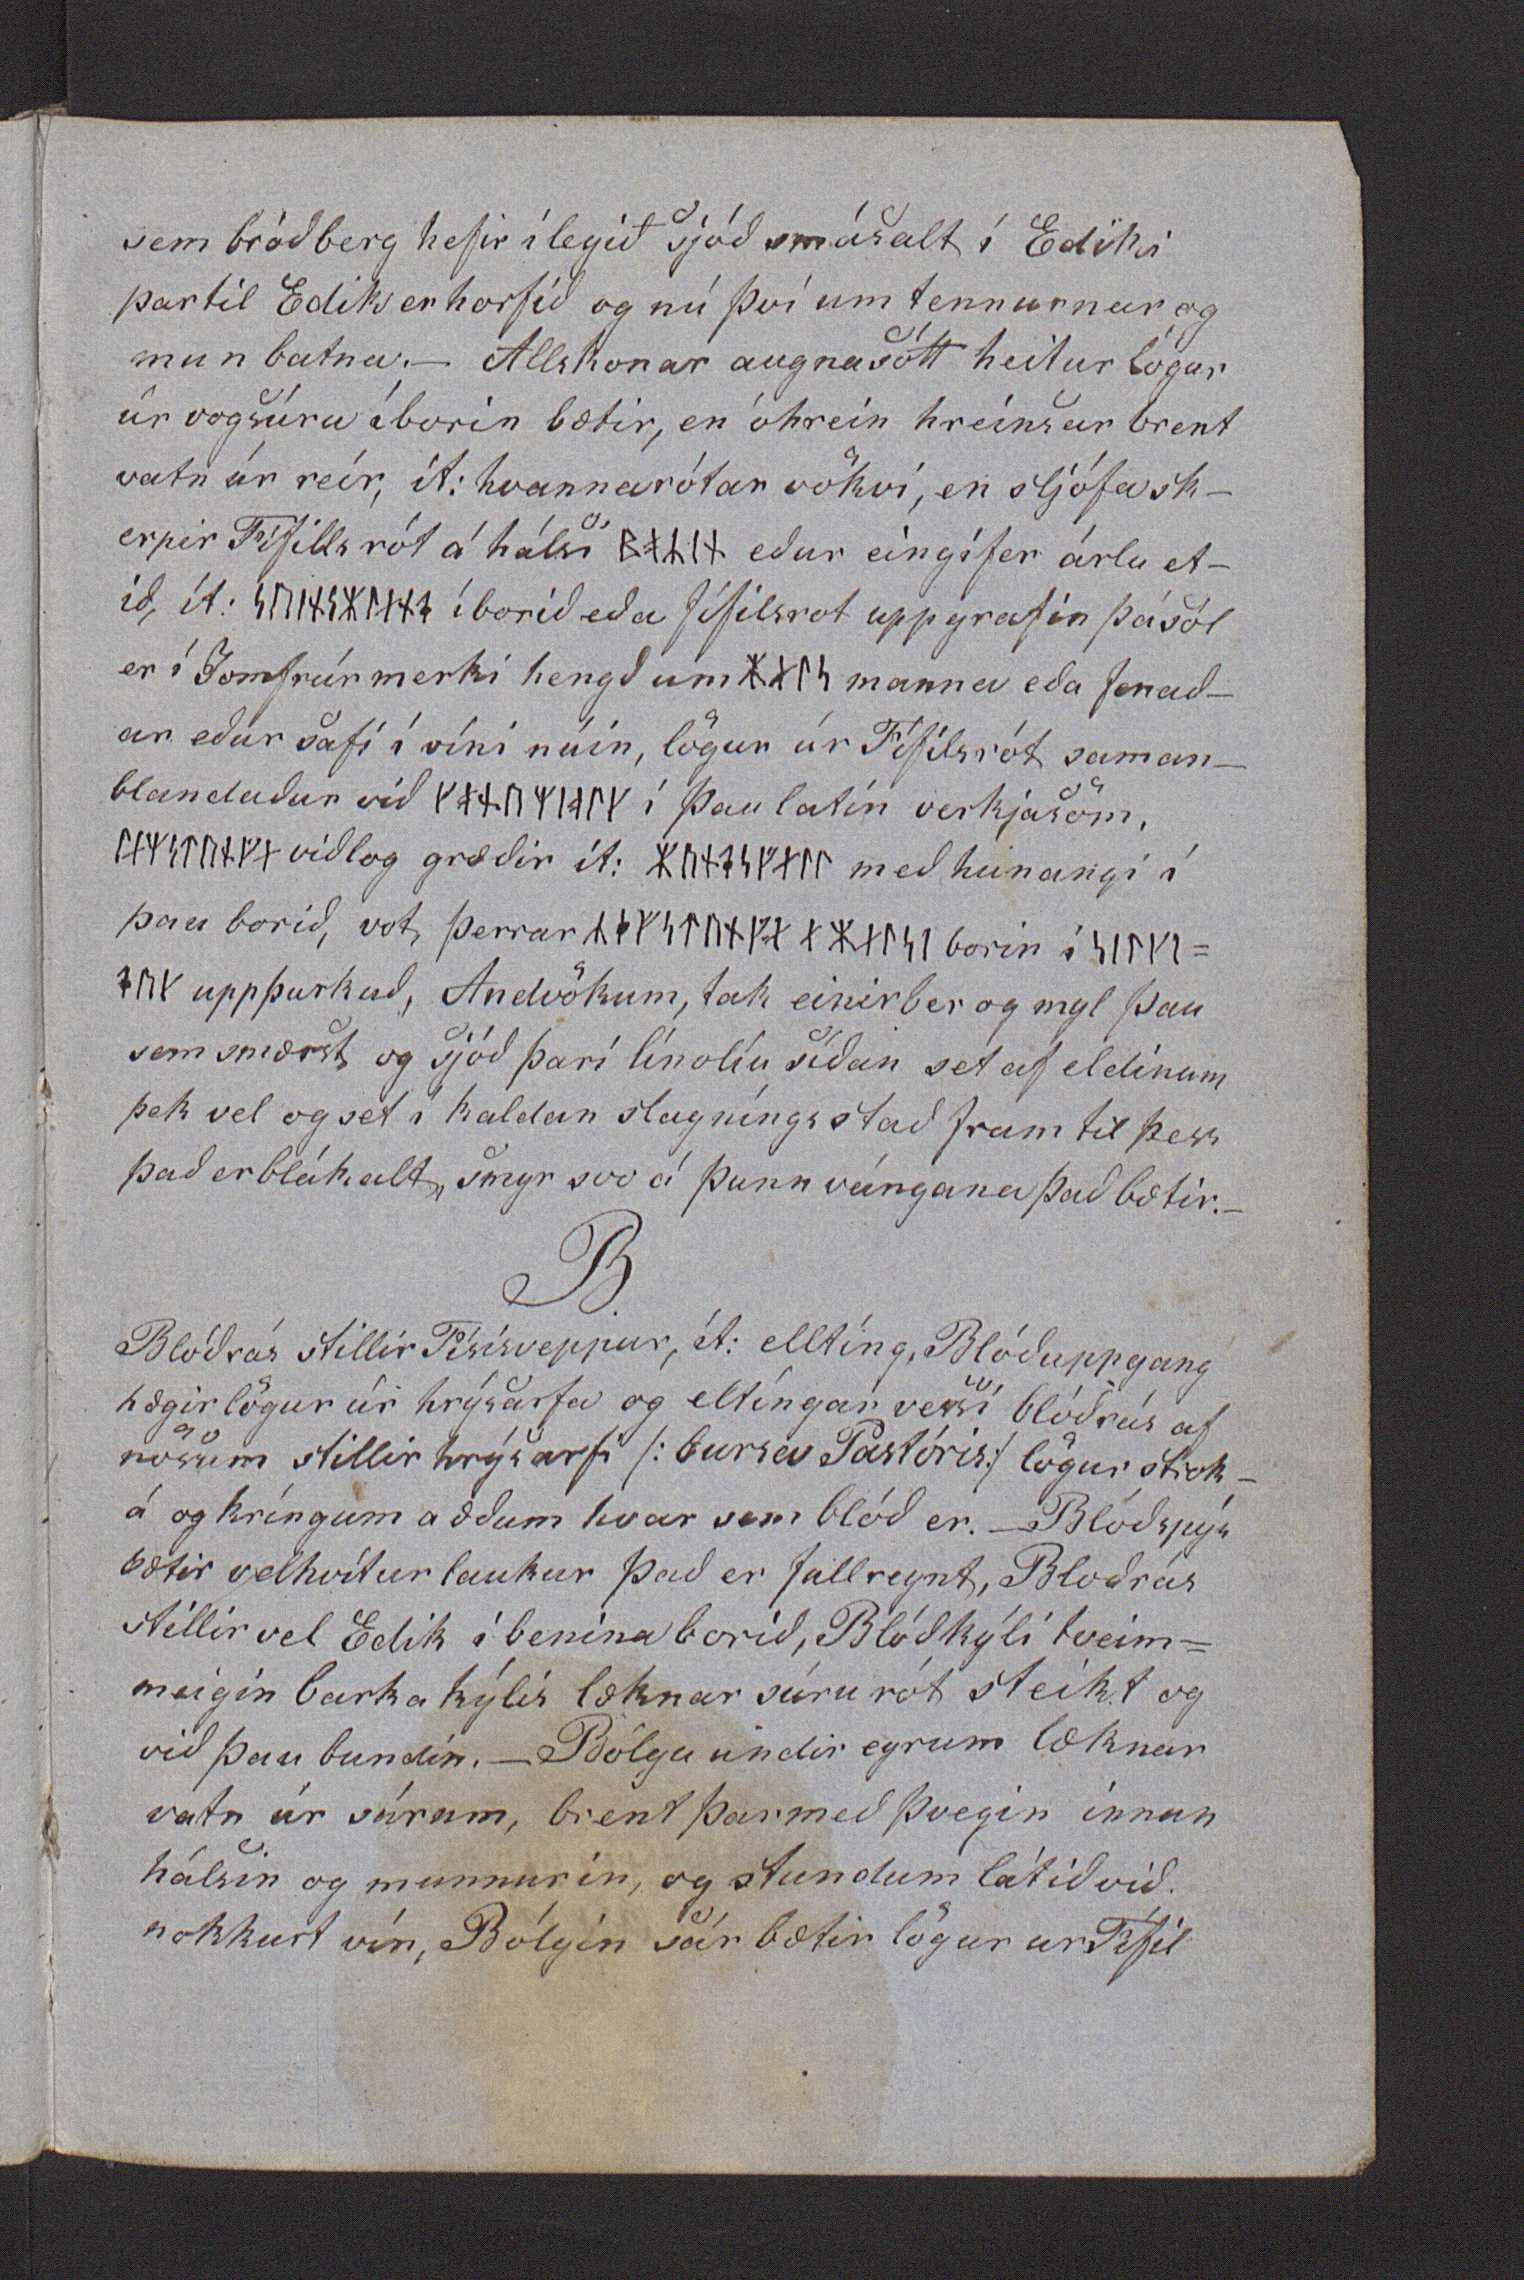 sem bródberg hefir ílegið sjód smásalt í Ediki
partil Edik er horfið og nú því um tennurnar og
mun batna.— Allskonar augnasótt heitur lögur
úr vogsúru íborin bætir, en óhrein hreinsar brent
vatn úr reir, ít: hvannarótar vökvi, en sljófa sk—
erpir Fífills rót á hálsi eður eingifer árla et—
ið, ít: íborið eða fífilsrot uppgrafin þá sól
er í Jomfrúrmerki hengd um ᚼᛆᛚᛋ manna eða fenað—
ar eður safi í víni núin, lögur úr Fífilsrót saman—
blandaður við í þau latin verkjasöm,
viðlog græðir ít: með hunangi í
þau borið, vot, þerrar borin í
uppþurkað, Andvökum, tak einirber og myl þau
sem smærst og sjóð þar í línolíu síðan set af eldinum
þek vel og set í kaldan slagníngs stað fram til þess
það er blákalt, smyr svo á þunn vángana það bætir.—
B
Blóðrás stillir Físisveppur, ít: elltíng, Blóðuppgang
hægir lögur úr hrýsarfa og eltíngar vessi blóðrás af
nösum stillir hrýsarfi /: bursa Pastóris:/ lögur strok—
á og kríngum a æðum hvar sem blóð er.— Blóðspýs
bætir vel hvítur laukur það er full reynt, Bloðrás
stillir vel Edik í benina borið, Blóðkýli tveim=
meigin barka kýlis læknar súru rót steikt og
við þau bundin.— Bólgu undir eyrum læknar
vatn úr súrum, brent þar með þvegin innan
hálsin og munnurin, og stundum látið við.
nokkurt vín, Bólgin sár bætir lögur ur Fífil